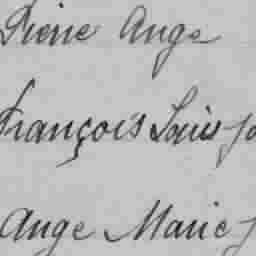 Pierre Ange
François Louis
Ange Marie